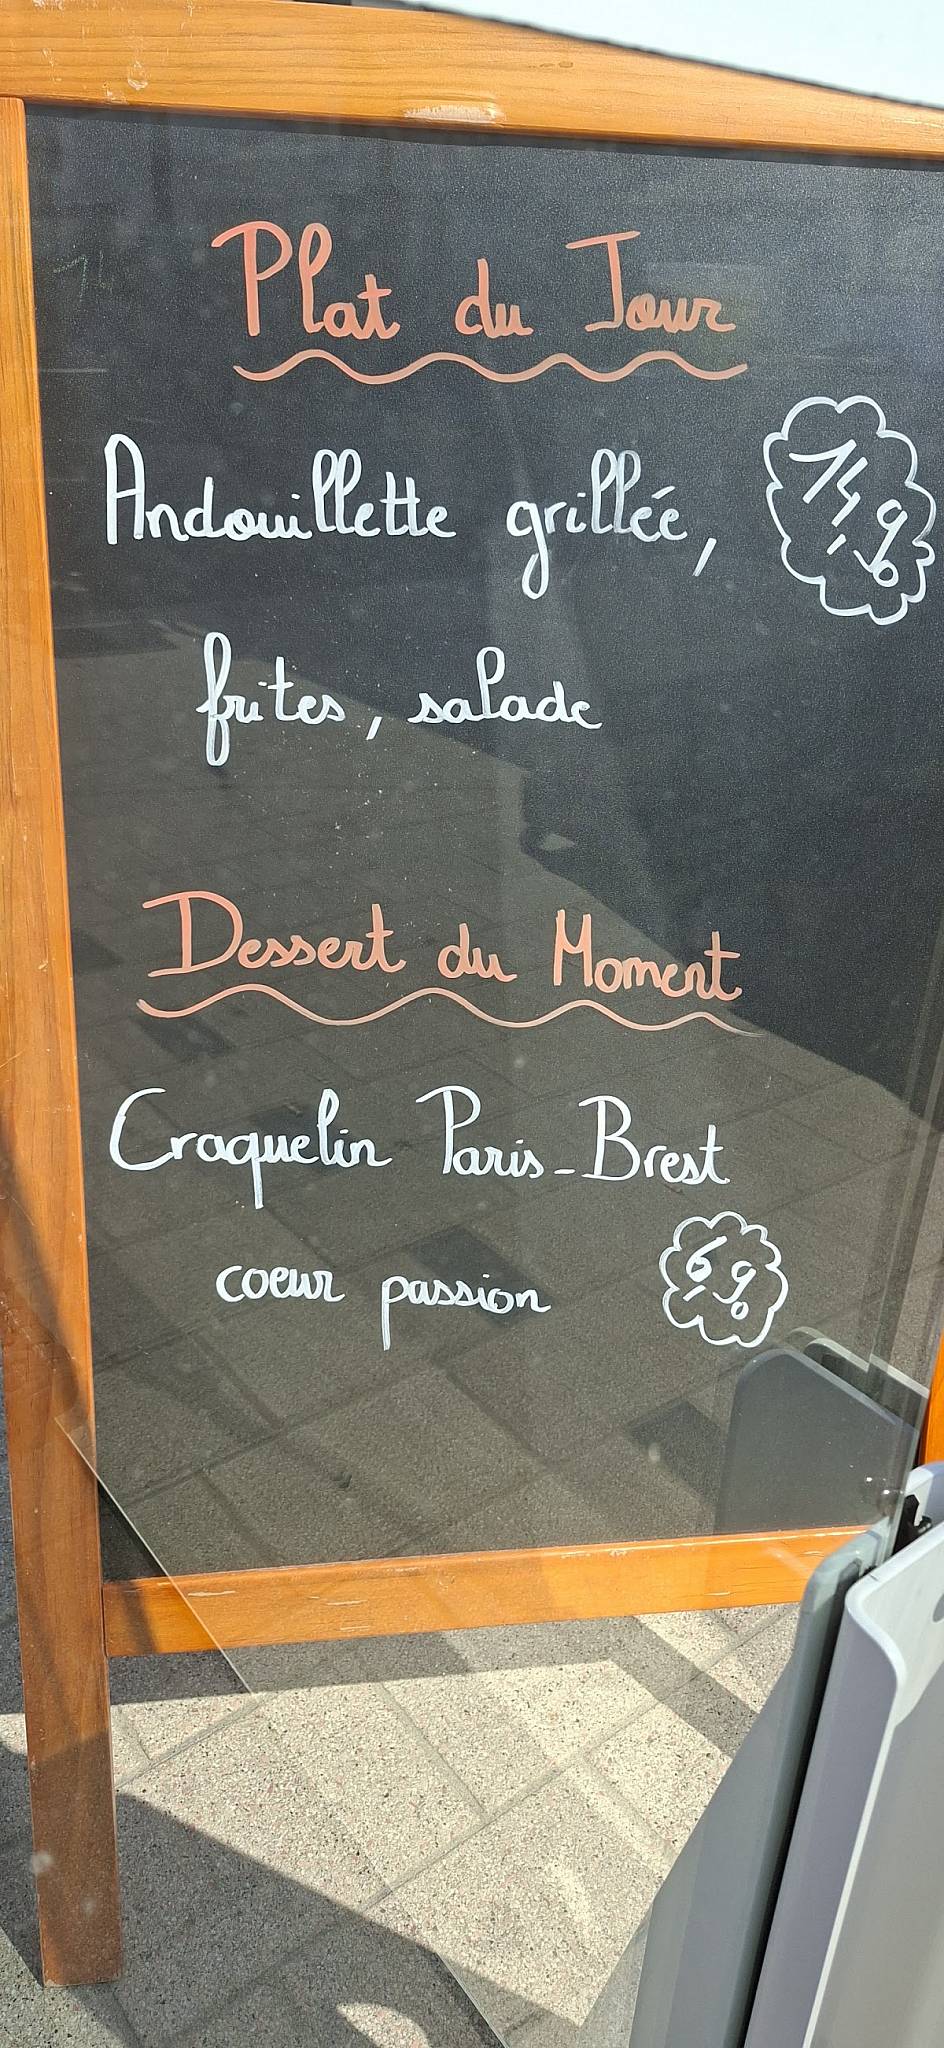 Plat du Jour
Andouillette grillée, 14,90
frites, salade
Dessert du Moment
Craquelin Paris-Brest
coeur passion 6,90